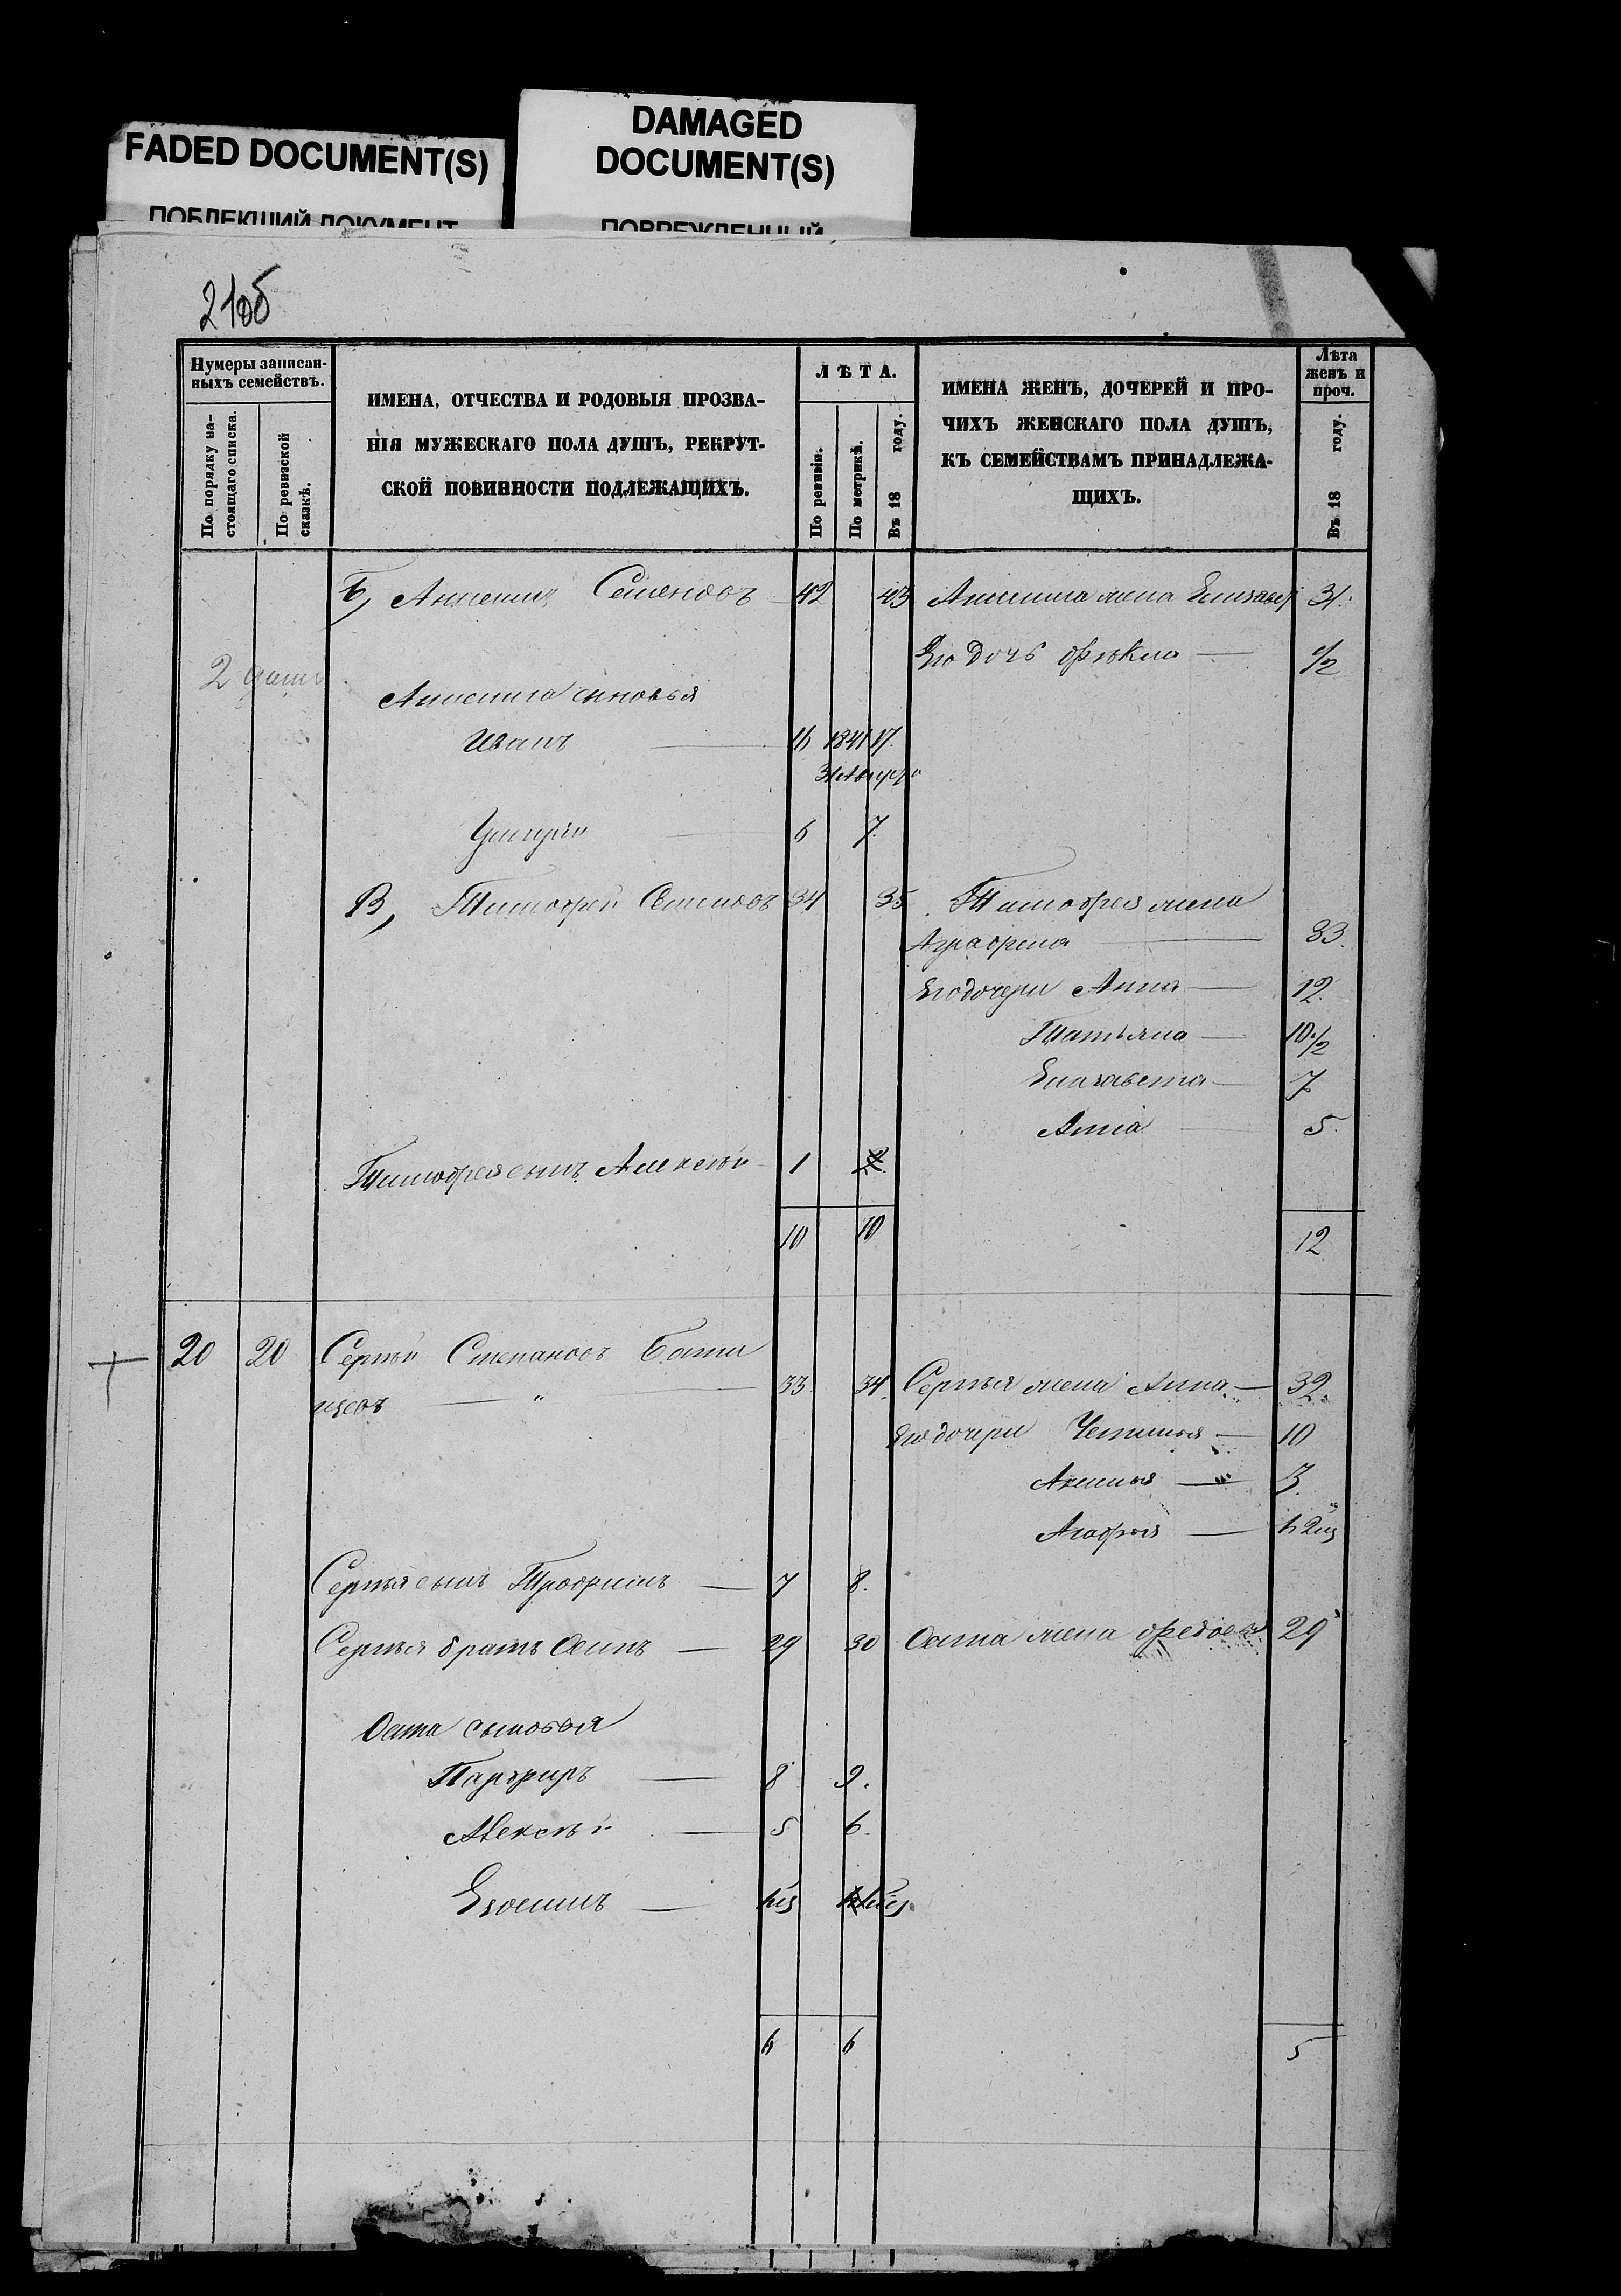 FADED DOCUMENT(S)
ПОБЛЕКШИЙ ДОКУМЕНТ
DAMAGED
DOCUMENT(S)
ПОВРЕЖДЕННЫЙ
21об
Нумеры записан-
ныхъ семействъ.
По порядку на-
стоящаго списка.
По ревизской
сказкѣ.
ИМЕНА, ОТЧЕСТВА И РОДОВЫЯ ПРОЗВА-
НІЯ МУЖЕСКАГО ПОЛА ДУШЪ, РЕКРУТ-
СКОЙ ПОВИННОСТИ ПОДЛЕЖАЩИХЪ.
ЛѢТА.
По ревизіи.
По метрикѣ.
Въ 18 году.
ИМЕНА ЖЕНЪ, ДОЧЕРЕЙ И ПРО-
ЧИХЪ ЖЕНСКАГО ПОЛА ДУШЪ,
КЪ СЕМЕЙСТВАМЪ ПРИНАДЛЕЖА-
ЩИХЪ.
Лѣта
женъ и
проч.
Въ 18 году.
Б, Семеновъ 42 43 жена Елизавет 31.
Его дочь Ѳекла 1/2
2
сыновья
Иванъ 16 1841 17.
6 7.
В, Тимофей Семеновъ 34 35 Тимофея жена
Аграфена 33.
Его дочери Анна 12.
Татьяна 10 1/2
Елизавета 7
Анна 5.
Тимофея сынъ Алексѣй 1 2.
10 10 12
20 20 Сергѣй Степановъ
33. 34. Сергѣя жена Анна 32.
Его дочери 10
Аксинья 3.
Агафья
Сергѣя сынъ Трофимъ 7 8.
Сергѣя братъ Осипъ 29 30 Осипа жена Ѳедосья 29
Осипа сыновья
Парфиръ 8 9.
Алексѣй 5 6.
6 6 5